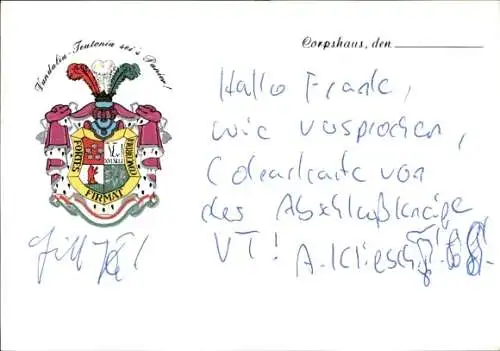 Vandalia-Teutonia sei's Panier!
Corpshaus, den
FORTES
FIRMAT
CONCORDIA
Hallo Frank,
wie versprochen,
Colourkarte von
der Abschlußkneipe
VT! A. Kliesch